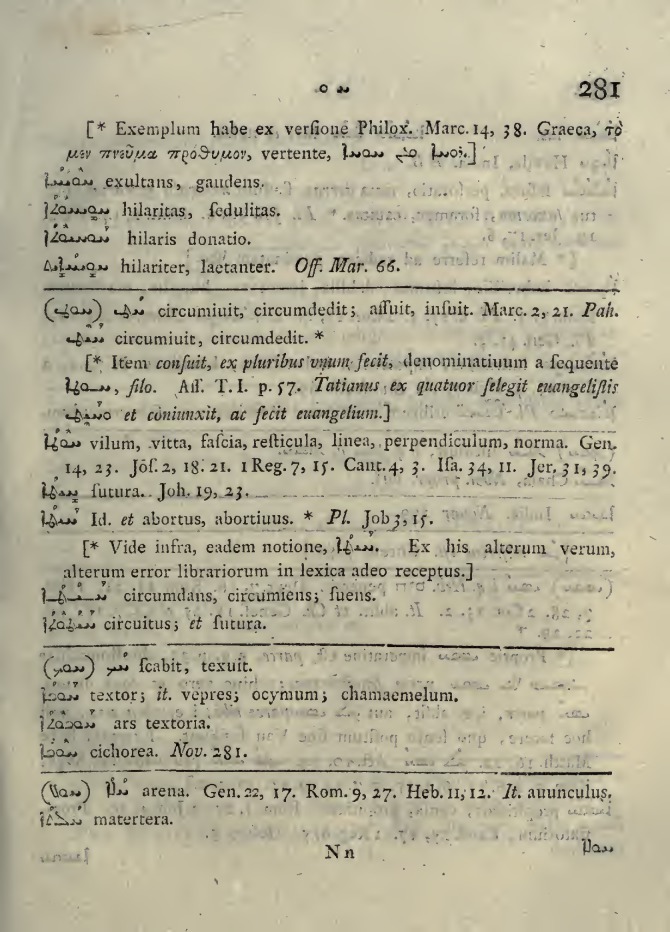 ܚ ܘ 281
[* Exemplum habe ex verſione Philox. Marc. 14, 38. Graeca, τὸ
μεν πνεῦμα προθυμον, vertente, ܪܘܚܐ ܡܢ .]
exultans, gaudens.
hilaritas, ſedulitas.
hilaris donatio.
hilariter, laetanter. Off. Mar. 66.
(ܚܘܛ) ܚܛ circumiuit, circumdedit; aſſuit, inſuit. Marc. 2, 21. Pah.
ܚܝܛ circumiuit, circumdedit. *
[* Item conſuit, ex pluribus vnum fecit, denominatiuum a ſequente
ܚܘܛܐ, filo. Aſſ. T. I. p. 57. Tatianus ex quatuor ſelegit euangeliſtis
ܘܚܝܛ et coniunxit, ac fecit euangelium.]
ܚܘܛܐ vilum, vitta, faſcia, reſticula, linea, perpendiculum, norma. Gen.
14, 23. Joſ. 2, 18. 21. 1 Reg. 7, 15. Cant. 4, 3. Iſa. 34, 11. Jer. 31, 39.
ܚܝܛܐ ſutura. Joh. 19, 23.
ܚܛܐ Id. et abortus, abortiuus. * Pl. Job 3, 15.
[* Vide infra, eadem notione, . Ex his alterum verum,
alterum error librariorum in lexica adeo receptus.]
ܚܝܛܐ circumdans, circumiens; ſuens.
ܚܝܛܘܬܐ circuitus; et ſutura.
(ܚܘܟ) ܚܟ ſcabit, texuit.
ܚܘܟܐ textor; it. vepres; ocymum; chamaemelum.
ܚܘܟܘܬܐ ars textoria.
ܚܘܟܐ cichorea. Nov. 281.
(ܚܘܠ) ܚܠܐ arena. Gen. 22, 17. Rom. 9, 27. Heb. 11, 12. It. auunculus.
ܚܠܬܐ matertera.
N n ܚܘܠܐ